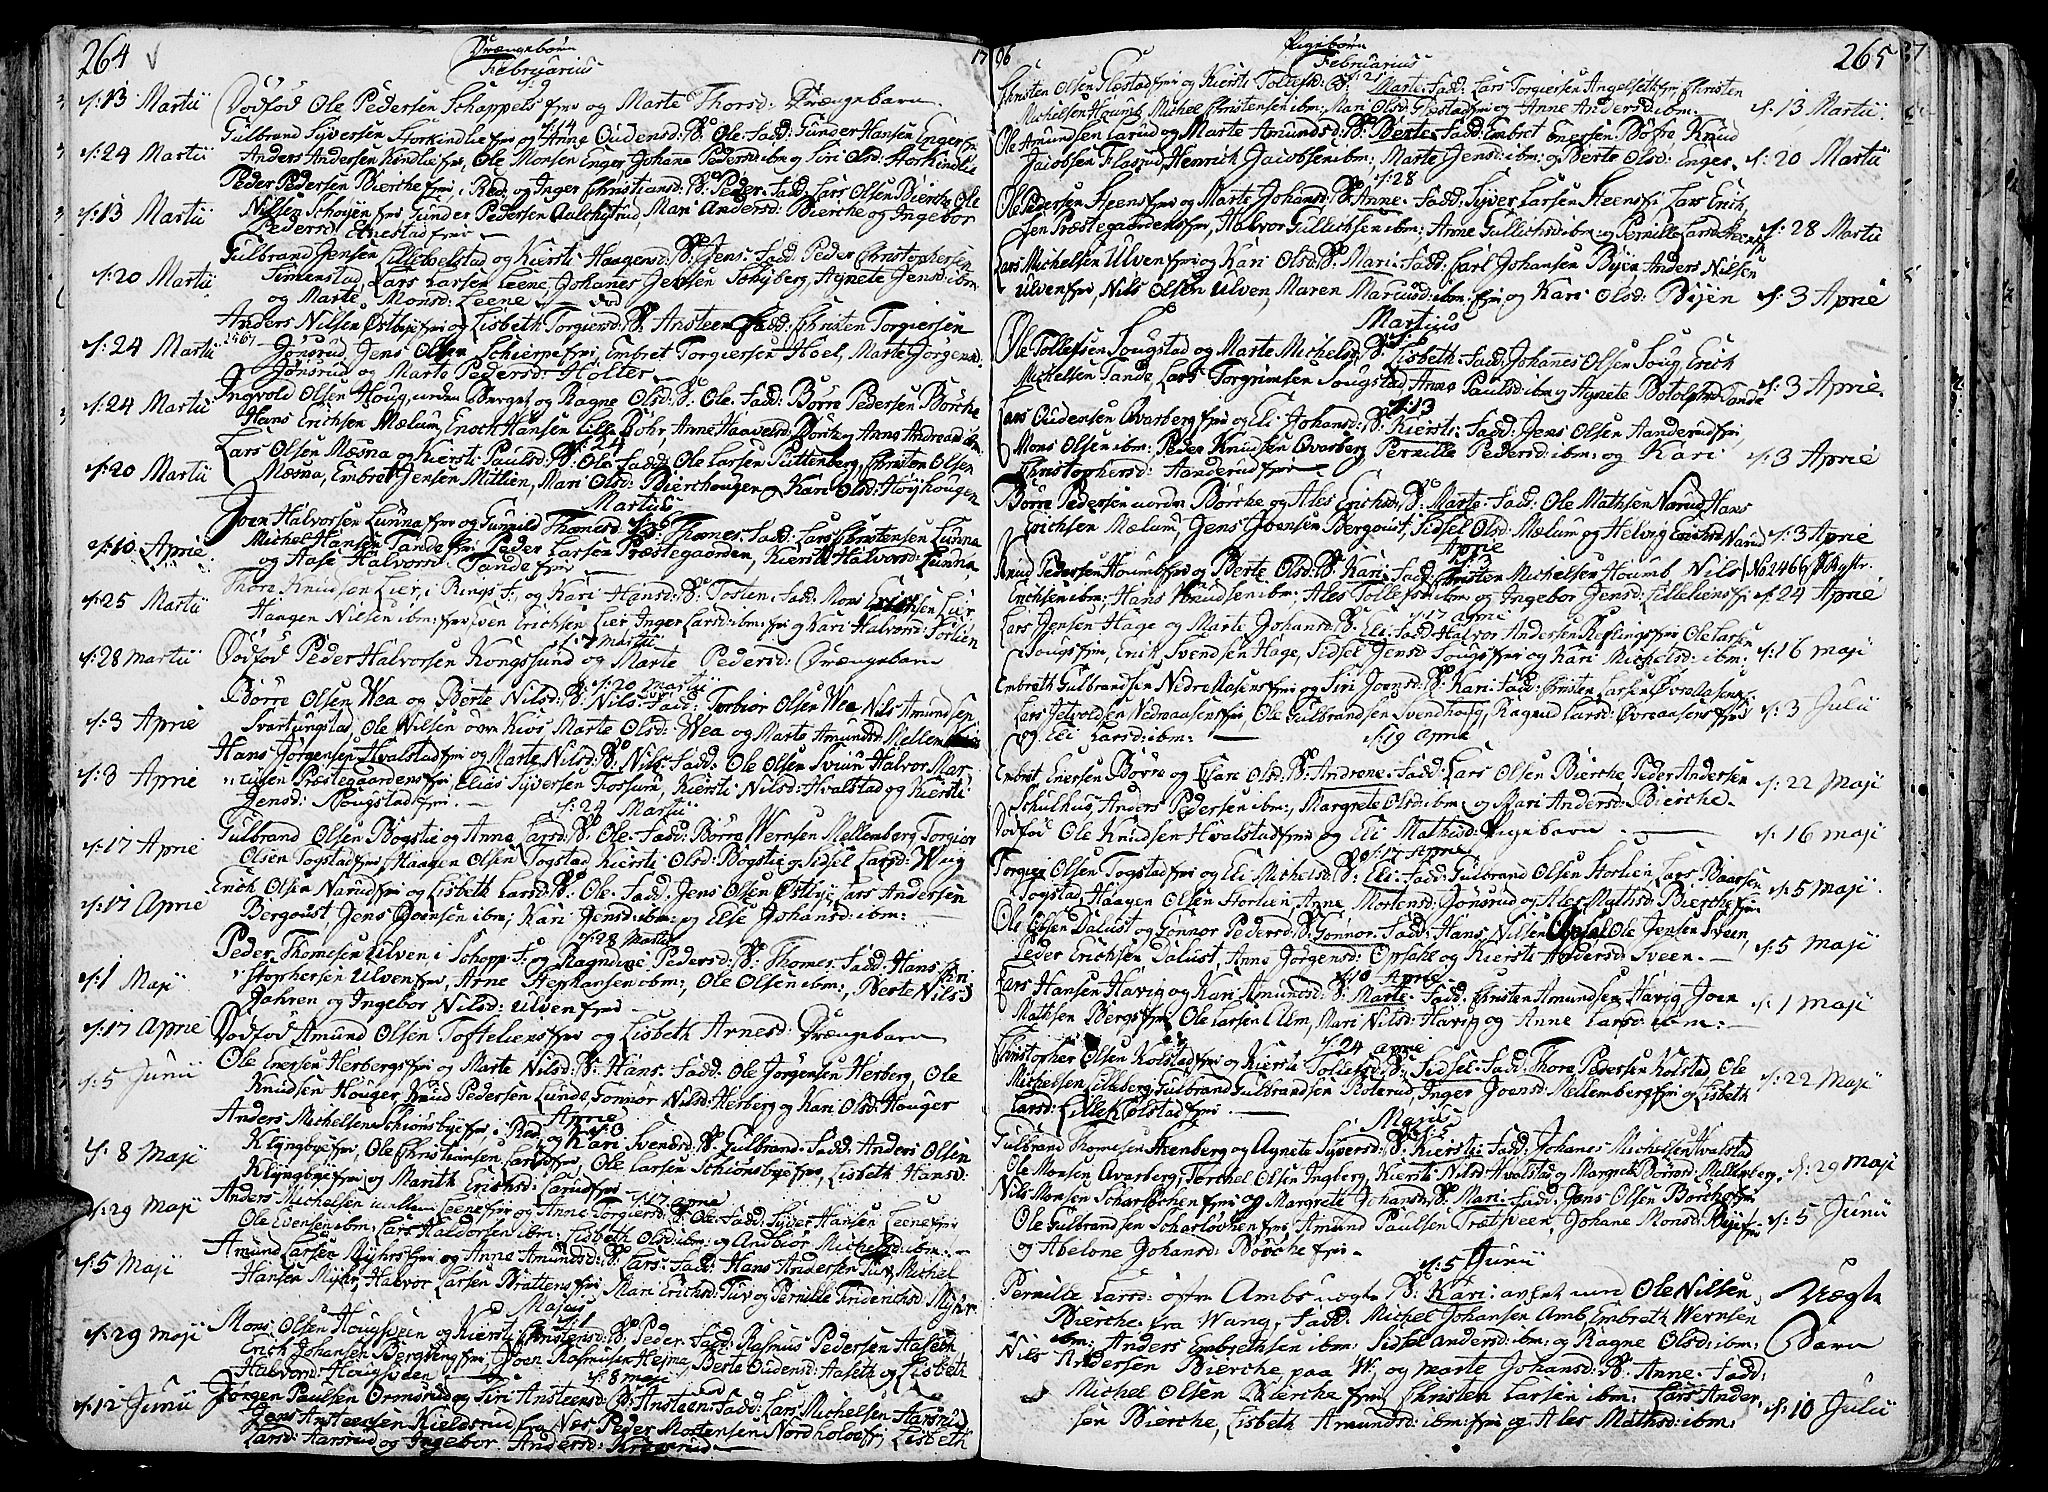 264
Drængebörn
17
Februarius
d: 9
d: 13 Martii Dödföd Ole Pedersen Schappels fri og Marte Thorsd: Drængebarn
Gulbrand Syversen Storkindlie fri og Anne Oudensd: Ole. Fadd: Gunder Hansen Enger fri
d: 24 Martii Anders Andersen Kindlie fri, Ole Monsen Enger Johane Pedersd ibm og Siri Olsd: Storkindlie
Peder Pedersen Bierche fri, i Red, og Inger Christiansd: Peder. Fadd: Lars Olsen Bierche, Ole
d: 13 Martii Nilsen Schøyen fri Gunder Pedersen Aalchustrud, Mari Andersd: Bierche og Ingebor
Pedersd Elnestad fri
Gulbrand Jensen Lilletvelstad og Kiersti Haagensd: Jens. Fadd: Peder Christophersen
d: 20 Martii Simenstad, Lars Larsen Leene, Johanes Jensen Sobyberg, Agnete Jensd: ibm
og Marte Monsd: Leene
Anders Nilsen Østbye fri og Lisbeth Torgiersd: Ansteen Fadd: Christen Torgiersen
d: 24 Martii Jönsrud, Jens Olsen Schierpe fri, Embret Torgiersen Hoel, Marte Jörgensd:
Jönsrud og Marte Pedersd: Holter
Ingvold Olsen Houg, under Berget og Ragne Olsd: Ole. Fadd: Börre Pedersen Börche
d: 24 Martii Hans Erichsen Mælum, Enoch Hansen Lille Böhr, Anne Haavelsd: og Anne Andreasd ibm
Lars Olsen Mæsna og Kiersti Paulsd: Ole. Fadd Ole Larsen Puttenberg, Christen Olsen
d: 20 Martii Mæsna, Embret Jensen Mitlien, Mari Olsd: Bierchougen og Kari Olsd: Høyhougen
Martius
Joen Halvorsen Lunna fri og Gunnild Thomesd: Thomes. Fadd: Lars Christensen Lunna
d: 10 Aprie Michel Hansen Tande fri Peder Larsen Præstegaarden, Kiersti Halvorsd: Lunna
og Aase Halvorsd: Tande fri
Thore Knudsen Lier, i Rings F: og Kari Hansd: Tosten. Fadd: Mons Erichsen Lier,
d: 25 Martii Haagen Nilsen ibm: fri, Even Erichsen Lier Inger Larsd: ibm: fri og Kari Halvorsd: Torlien
d: 7 Martii
d: 28 Martii Dödföd Peder Halvorsen Kongssund og Marte Pedersd: Drængebarn
d: 20 Martii
Börre Olsen Wea og Berte Nilsd: Nils. Fadd: Torbiør Olsen Wea Nils Amundsen
d: 3 Aprie Svartungstad, Ole Nilsen Kios Marte Olsd: Wea og Marte Amundsd Mellem
Hans Jörgensen Hvalstad fri og Marte Nilsd: Nils. Fadd: Ole Olsen Sveen Halvor Mar-
d: 3 Aprie tinsen Præstegaardens fri, Elias Syversen Fossum, Kiersti Nilsd: Hvalstad og Kiersti
Jensd: Sougstad fri.
d: 24 Martii
Gulbrand Olsen Bögstie og Anne Larsd: Ole. Fadd: Börre Wernsen Mellemberg, Torgier
d: 17 Aprie Olsen Togstad fri, Haagen Olsen Togstad Kiersti Olsd: Bögstie og Sidsel Larsd: Weig
Erich Olsen Narud fri og Lisbeth Larsd: Ole. Fadd: Jens Olsen Østbye, Lars Andersen
d: 17 Aprie Bergoust Jens Joensen ibm; Kari Jensd: ibm: og Else Johansd: ibm:
d: 28 Martii
Peder Thomesen Ulven i Schopp F: og Ragndie Pedersd: Thomes. Fadd: Hans Chri
d: 1 Maji stophersen Ulven fri, Arne Stephansen ibm:, Ole Olsen ibm:, Berte Nilsd
Jahren og Ingebor Nilsd: Ulven fri
d: 17 Aprie Dödföd Amund Olsen Toftelien fri og Lisbeth Arnesd: Drængebarn
d: 5 Junii Ole Enersen Herbergs fri og Marte Nilsd: Hans. Fadd: Ole Jörgensen Herberg, Ole
Knudsen Houger, Knud Pedersen Lunde, Gønnor Nilsd: Herberg og Kari Olsd: Houger
Aprie
Anders Michelsen Schiønsbye fri, i Red, og Kari Svensrd: Gulbrand. Fadd: Anders Olsen
d: 8 Maji Klyngbye fri, Ole Christiansen Larud fri, Ole Larsen Schionsbye fri, Lisbeth Hansd:
Klyngbye fri og Marith Erichsd: Larud fri
d: 17 Aprie
Anders Michelsen Leene fri og Anne Torgiersd: Ole. Fadd: Syver Hansen Leene fri
d: 29 Maji Ole Evensen ibm: Lars Haldorsen ibm: Lisbeth Olsd: ibm: og Andbiör Michelsd: ibm:
Amund Larsen Myhrs fri og Anne Amundsd: Lars. Fadd: Hans Andersen Tuv, Michel
d: 5 Maji Hansen Myhr, Halvor Larsen Brattens fri, Mari Erichsd: Tuv og Pernille Friderichsd: Myhr
Majus
Mons Olsen Hougsveen og Kiersti Christensd: Peder. Fadd: Rasmus Pedersen Haseth
d: 29 Maji Erich Johansen Bergseng fri, Joen Rasmusen Hejna, Berte Oudensd: Haseth og Lisbeth
Halvorsd: Hougsveen
d: 8 Maji
Jörgen Paulsen Ormsrud og Siri Ansteensd: Ansteen. Fadd: Lars Michelsen Aarsrud
d: 12 Junii Jens Ansteensen Kieldsrud fra Næs Peder Mortensen Nordholoe fri, Lisbeth
Larsd: Aarsrud og Ingebor Andersd: Krøgsrud
96
Pigebörn
265
Februarius
d: 21
Christen Olsen Glæstad fri og Kiersti Tollefsd: Marte. Fadd: Lars Torgiersen Angelseth fri Christen
Michelsen Houmb, Michel Christensen ibm: Mari Olsd: Glestad fri og Anne Andersd: ibm: d: 13 Martii
Ole Amundsen Larud og Marte Amundsd: Berte. Fadd Embret Enersen Böfre, Knud
Jacobsen Flasrud, Henrich Jacobsen ibm: Marte Jensd: ibm: og Berte Olsd: Enger. d: 20 Martii
d: 28
Ole Pedersen Steens fri og Marte Johansd: Anne. Fadd: Syver Larsen Steens fri, Lars Erich
sen Præstegaardens fri, Halvor Gullichsen ibm: Anne Gullichsd: ibm: og Pernille Larsd Steens fri d: 28 Martii
Lars Michelsen Ulven fri og Kari Olsd: Mari. Fadd: Carl Johansen Byen Anders Nilsen
Ulven fri, Nils Olsen Ulven, Maren Mariusd: ibm: fri og Kari Olsd: Byen d: 3 Aprie
Martius
Ole Tollefsen Sougstad og Marte Michelsd: Lisbeth. Fadd: Johanes Olsen Soug, Erich
Michelsen Tande Lars Torgrimsen Sougstad Anne Paulsd: ibm og Agnete Botolphsd Tande d: 3 Aprie.
d: 13
Lars Oudensen Qvarberg fri og Eli Johansd: Kiersti. Fadd: Jens Olsen Aanderud fri,
Mons Olsen ibm: Peder Knudsen Qvarberg Pernille Pedersd: ibm: og Kari d: 3 Aprie
Christophersd: Aanderud fri
Börre Pedersen nordre Börche og Ales Erichsd: Marte. Fadd: Ole Mathsen Narud Hans
Erichsen Mælum, Jens Joensen Bergoust, Sidsel Olsd: Mælum og Helvig Erichsd Narud d: 3 Aprie
Aprie
d: 3
Knud Pedersen Houmb fri og Berte Olsd: Kari. Fadd Christen Michelsen Houmb Nils No 2466
Erichsen ibm:, Hans Knudsen ibm:, Ales Tollefsd: ibm: og Ingebor Jensd: Lillelien fri d: 24 Aprie
d: 17 Aprie
Lars Jensen Hage og Marte Johansd: Eli. Fadd: Halvor Andersen Reflings fri Ole Larsen
Sougs fri, Erik Svendsen Hage, Sidsel Jensd Sougs fri og Kari Michelsd: ibm: d: 16 Maji
Embreth Gulbrandsen Nedre Aasens fri og Siri Joensd: Kari. Fadd: Christen Larsen Øvre Aasens,
Lars Jetvoldsen Nedreaasens fri, Ole Gulbrandsen Svendhoug, Ragne Larsd: Øvreaasens fri d: 3 Julii
og Eli Larsd: ibm:
d: 19 Aprie
Embret Enersen Börre og Kari Olsd: Androne. Fadd: Lars Olsen Bierche, Peder Andersen
Schulhus, Anders Pedersen ibm:, Margrete Olsd: ibm og Mari Andersd: Bierche. d: 22 Maji
Dödföd Ole Knudsen Hvalstad fri og Eli Mathisd: Pigebarn d: 16 Maji
d: 17 Aprie
Torgier Olsen Togstad fri og Eli Michelsd: Eli. Fadd: Gulbrand Olsen Storlien, Lars Baarsen
Togstad, Haagen Olsen Storlien, Anne Mortensd: Jönsrud og Ales Mathsd: Bierche fri d: 5 Maji
Ole Olsen Dalust og Gönnor Pedersd: Gönnor. Fadd: Hans Nilsen Opsal Ole Jensen Sveen,
Peder Erichsen Dalust, Anne Jörgensd: Opsahl og Kiersti Andersd: Sveen. d: 5 Maji
d: 10 Aprie
Lars Hansen Havig og Kari Amundsd: Marte. Fadd: Christen Amundsen Havig Joen
Mathsen Bergs fri Ole Larsen Ulm, Mari Nilsd: Havig og Anne Larsd: ibm: d: 1 Maji
d: 24 Aprie
Christopher Olsen Kolstad fri og Kiersti Tollefsd: Sidsel. Fadd: Thore Pedersen Kolstad Ole
Michelsen Lilleberg, Gulbrand Gulbrandsen Roterud, Inger Joensd: Mellemberg fri og Lisbeth d: 22 Maji
Larsd: Lille Kolstad fri.
Majus
d: 5
Gulbrand Thomesen Stenberg og Agnete Syversd: Kiersti. Fadd: Johanes Michelsen Hvalstad
Ole Monsen Qvarberg, Torchel Olsen Ingberg, Kiersti Nilsd Hvalstad og Margrete Börresd: Mellemberg, d: 29 Maji
Nils Monsen Scharløchen fri og Margrete Johansd: Mari. Fadd: Jens Olsen Börche fri
Ole Gulbrandsen Scharløchen fri Amund Paulsen Trætsveen, Johane Monsd Bye fri d: 5 Junii
og Abelone Johansd: Börche fri.
d: 5 Junii
Pernille Larsd: öfre Ambs uægte Kari. avlet med Ole Nilsen, Uægte
Bierche fra Wang, Fadd: Michel Johansen Amb, Embreth Wernsen
ibm: Anders Embrethsen ibm: Sidsel Andersd: ibm: og Ragne Olsd: ibm: Barn
Nils Andersen Bierche, paa W; og Marte Johansd: Anne. Fadd:
Michel Olsen Bierche fri, Christen Larsen ibm: Lars Ander-
sen Bierche, Lisbeth Amundsd: ibm: fri og Ales Mathsd: ibm: d: 10 Julii